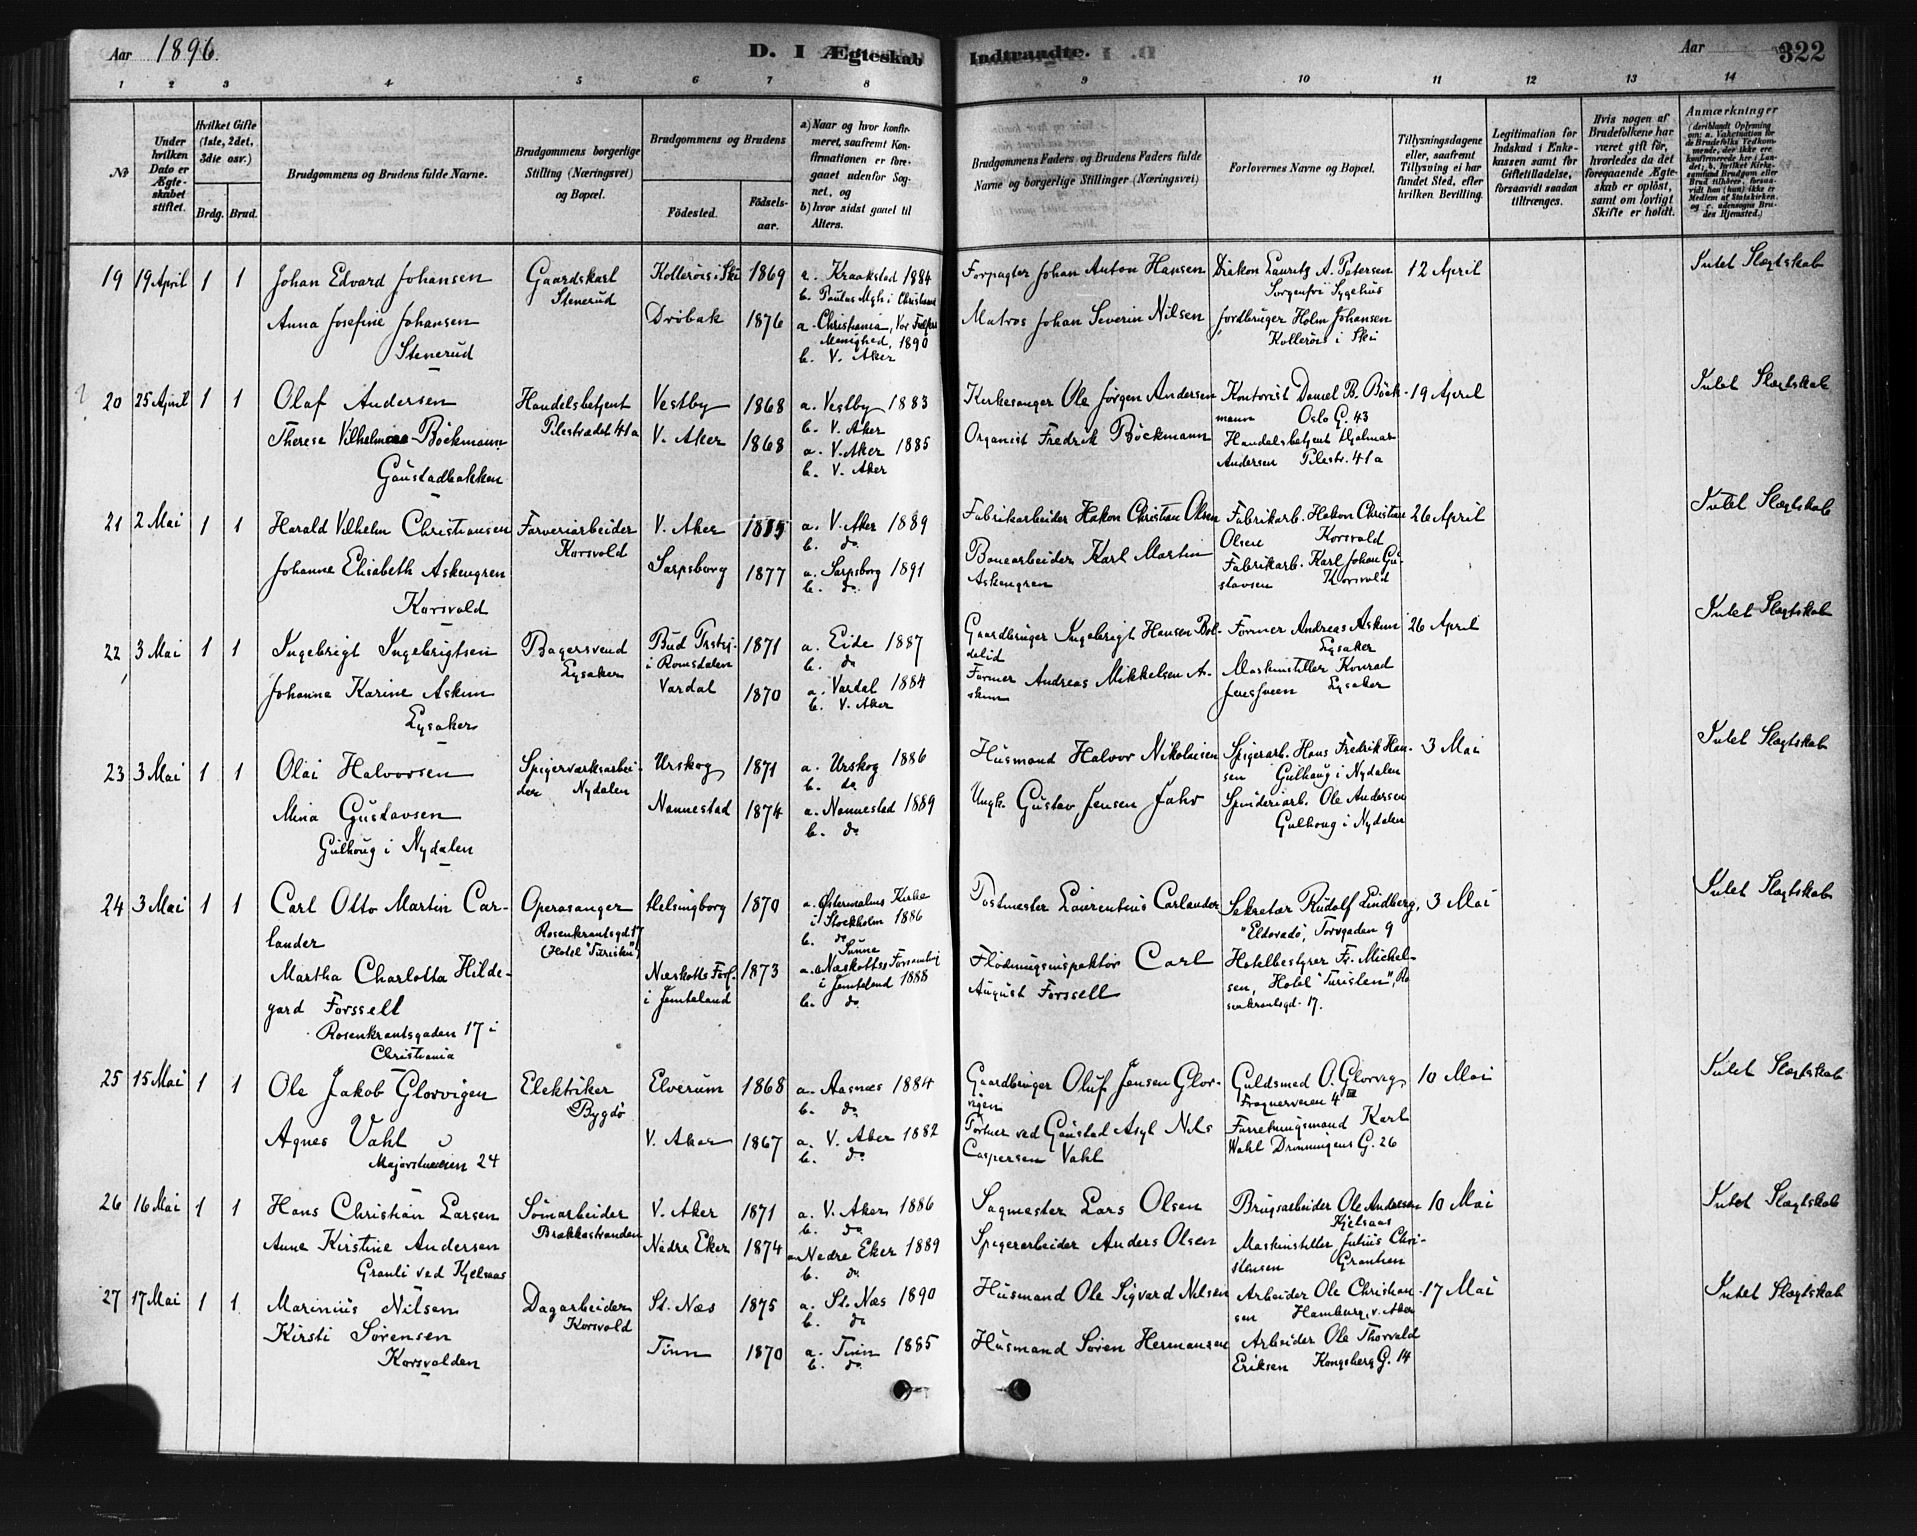 Aar 1896.
D. I Ægteskab
Indtraadte.
Aar
322
1 2 3 4 5 6 7 8
9 10 11 12 13 14
№
Under hvilken Dato er Ægteskabet stiftet.
Hvilket Gifte (1ste, 2det, 3die osv.)
Brdg. Brud.
Brudgommens og Brudens fulde Navne.
Brudgommens borgerlige Stilling (Næringsvei) og Bopæl.
Brudgommens og Brudens
Födested.
Födselsaar.
a) Naar og hvor konfirmeret, saafremt Konfirmationen er foregaaet udenfor Sognet, og
b) hvor sidst gaaet til Alters.
Brudgommens Faders og Brudens Faders fulde Navne og borgerlige Stillinger (Næringsvei)
Forlovernes Navne og Bopæl.
Tillysningsdagene eller, saafremt Tillysning ei har fundet Sted, efter hvilken Bevilling.
Legitimation for Indskud i Enkekassen samt for Giftetilladelse, forsaavidt saadan tiltrænges.
Hvis nogen af Brudefolkene har været gift för, hvorledes da det foregaaende Ægteskab er oplöst, samt om lovligt Skifte er holdt.
Anmærkninger
19 19 April 1 1 Johan Edvard Johansen
Gaardskarl Stenerud
Kolleröis i Ski 1869
a. Kraakstad 1884
Forpagter Johan Anton Hansen
Diakon Lauritz A. Petersen
Sorgenfri Sygehus
12 April
Intet Slægtskab
Anna Josefine Johansen
Stenerud
Dröbak 1876
a. Christiania, Vor Frelsers Menighed, 1890
b. V. Aker
Matros Johan Severin Nilsen
Jordbruger Holm Johansen
Kolleröis i Ski
20 25 April 1 1 Olaf Andersen
Handelsbetjent
Pilestrædet 41a
Vestby 1868
a. Vestby 1883
b. V. Aker
Kirkesanger Ole Jörgen Andersen
Kontorist Daniel B. Böckmann Oslo G. 43
19 April
Intet Slægtskab
Therese Vilhelmine Böckmann
Gaustadbakken
V. Aker 1868
a. V. Aker 1885
b. V. Aker
Organist Fredrik Böckmann
Handelsbetjent Hjalmar
Andersen Pilestr. 41a
21 2 Mai 1 1 Harald Vilhelm Christiansen
Farveriarbeider
Korsvold
V. Aker 1875
a. V. Aker 1889
b. do
Fabrikarbeider Hakon Christian Olsen
Fabrikarb. Hakon Christian
Olsen Korsvold
26 April
Intet Slægtskab
Johanne Elisabeth Askengren
Korsvold
Sarpsborg 1877
a. Sarpsborg 1891
b. do
Banearbeider Karl Martin
Askengren
Fabrikarb. Karl Johan Gustavsen Korsvold
22 3 Mai 1 1 Ingebrigt Ingebrigtsen
Bagersvend
Lysaker
Bud Prstgj.
i Romsdalen 1871
a. Eide 1887
b. do
Gaardbruger Ingebrigt Hansen Boldelid
Former Andreas Askim
Lysaker
26 April
Intet Slægtskab
Johanna Karine Askim
Lysaker
Vardal 1870
a. Vardal 1884
b. V. Aker
Former Andreas Mikkelsen Askim
Maskinstiller Konrad
Lysaker
23 3 Mai 1 1 Olai Halvorsen
Spigerværksarbeider Nydalen
Urskog 1871
a. Urskog 1886
b. do
Husmand Halvor Nikolaisen
Spigerarb. Hans Fredrik Hansen Gulhaug i Nydalen
3 Mai
Intet Slægtskab
Mina Gustavsen
Gulhoug i Nydalen
Nannestad 1874
a. Nannestad 1889
b. do
Ungk. Gustav Jensen Jahr
Spinderiarb. Ole Andersen
Gulhoug i Nydalen
24 3 Mai 1 1 Carl Otto Martin Carlander
Operasanger
Rosenkrantsgd 17
(Hotel "Turisten")
Helsingborg 1870
a. Østermalms Kirke
i Stockholm 1886
b. do
Postmester Laurentius Carlander
Sekretær Rudolf Lindberg,
"Eldorado", Torvgaden 9
3 Mai
Intet Slægtskab
Martha Charlotta Hildegard Forssell
Rosenkrantsgaden 17 i
Christiania
Næskotts Fors.
i Jemteland 1873
a. Næskotts Forsamling
i Jemteland 1888
b. do
Flödningsinspektör Carl
August Forssell
Hotelbestyrer Fr. Michelsen, Hotel "Turisten", Rosenkrantsgd. 17.
25 15 Mai 1 1 Ole Jakob Glorvigen
Elektriker
Bygdö
Elverum 1868
a. Aasnæs 1884
b. do
Gaardbruger Oluf Jensen Glorvigen
Guldsmed O. Glorvig
Frognerveien 4 III
10 Mai
Intet Slægtskab
Agnes Vahl
Majorstueveien 24
V. Aker 1867
a. V. Aker 1882
b. do
Portner ved Gaustad Asyl Nils
Caspersen Vahl
Forretningsmand Karl
Wahl Dronningens G. 26
26 16 Mai 1 1 Hans Christian Larsen
Sömarbeider
Brækkestranden
V. Aker 1871
a. V. Aker 1886
b. do
Sagmester Lars Olsen
Brugsarbeider Ole Andersen
Kjelsaas
10 Mai
Intet Slægtskab
Anne Kirstine Andersen
Granli ved Kjelsaas
Nedre Eker 1874
a. Nedre Eker 1889
b. do
Spigerarbeider Anders Olsen
Maskinstiller Julius Christensen
27 17 Mai 1 1 Marinius Nilsen
Dagarbeider
Korsvold
St. Næs 1875
a. St. Næs 1890
b. do
Husmand Ole Sigvard Nilsen
Arbeider Ole Christiansen Hamburg, V. Aker
17 Mai
Intet Slægtskab
Kirsti Sørensen
Korsvolden
Tinn 1870
a. Tinn 1885
b. do
Husmand Sören Hermansen
Arbeider Ole Thorvald
Eriksen Kongsberg G. 14